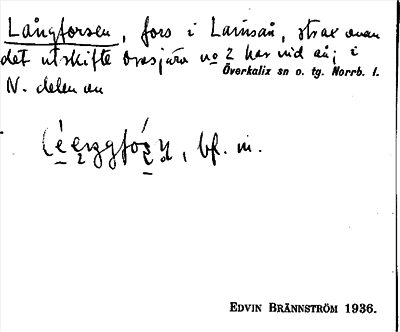 Långforsen, fors i Lansån, strax ovan
det utskifte Orrsjära no 2 har vid ån; i
Överkalix sn o. tg. Norrb. l.
N. delen av
bf. m.
EDVIN BRÄNNSTRÖM 1936.